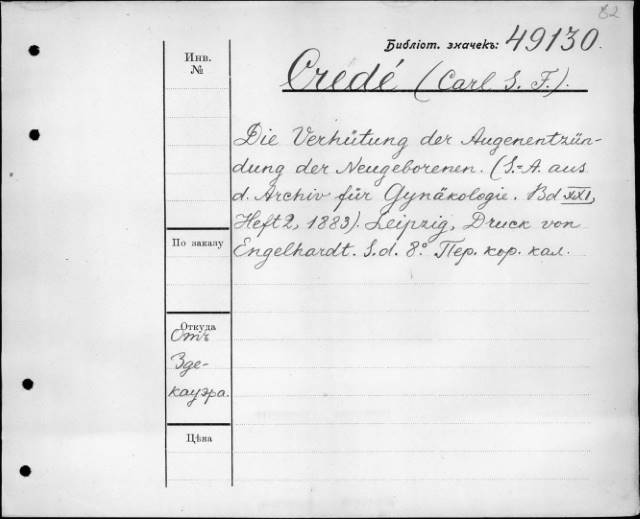 82
Библіот. значекъ: 49130.
Инв.
№
Credé (Carl S. F.).
Die Verhütung der Augenentzün-
dung der Neugeborenen. (S.-A. aus
d. Archiv für Gynäkologie. Bd XXI,
Heft 2, 1883). Leipzig, Druck von
Engelhardt. S. d. 8°. Пер. кор. кал.
По заказу
Откуда
Отъ
Зде-
кауэра.
Цѣна